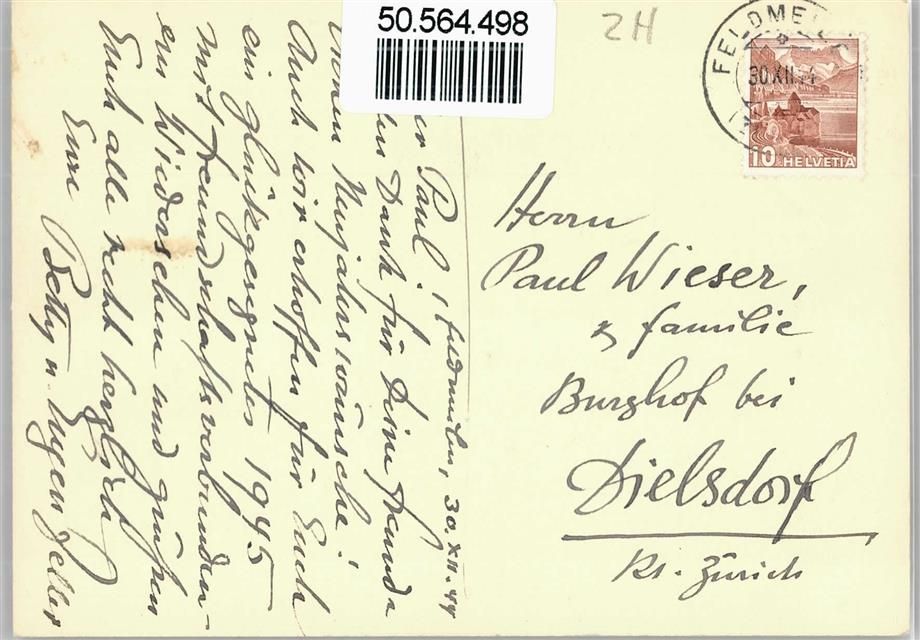 50.564.498
2H
FELDMEI
30.XII.44
10 HELVETIA
Feldmeilen, 30.XII.44
Paul!
Dank für Deine freundl.
Neujahrswünsche!
Auch wir erhoffen für Euch
ein glückgesegnetes 1945
mit freundschaftsverbunden-
em Wiedersehen und grüßen
Euch alle recht herzlich
Eure Betty u. Eugen Zeller
Herrn
Paul Wieser,
& familie
Burghof bei
Dielsdorf
Kt. Zürich